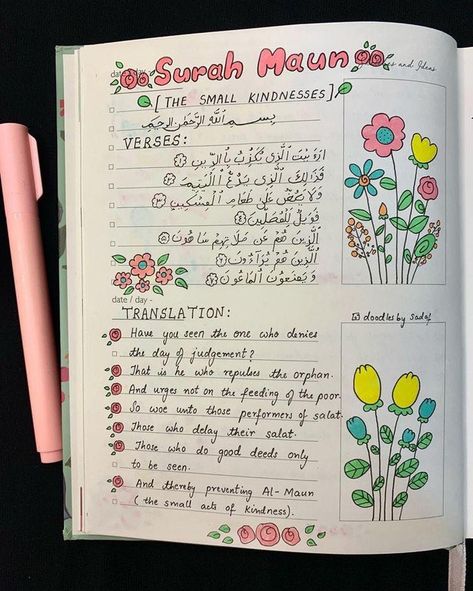 date / day
Surah Maun
s and Ideas
[THE SMALL KINDNESSES]
بِسْمِ ٱللَّهِ ٱلرَّحْمَٰنِ ٱلرَّحِيمِ
VERSES:
أَرَءَيْتَ ٱلَّذِي يُكَذِّبُ بِٱلدِّينِ ۝١
فَذَٰلِكَ ٱلَّذِي يَدُعُّ ٱلْيَتِيمَ ۝٢
وَلَا يَحُضُّ عَلَىٰ طَعَامِ ٱلْمِسْكِينِ ۝٣
فَوَيْلٌ لِّلْمُصَلِّينَ ۝٤
ٱلَّذِينَ هُمْ عَن صَلَاتِهِمْ سَاهُونَ ۝٥
ٱلَّذِينَ هُمْ يُرَآءُونَ ۝٦
وَيَمْنَعُونَ ٱلْمَاعُونَ ۝٧
date / day -
TRANSLATION:
Have you seen the one who denies
the day of judgement?
That is he who repulses the orphan.
And urges not on the feeding of the poor.
So woe unto those performers of salat.
Those who delay their salat.
Those who do good deeds only
to be seen.
And thereby preventing Al-Maun
(the small acts of kindness).
doodles by sadaf